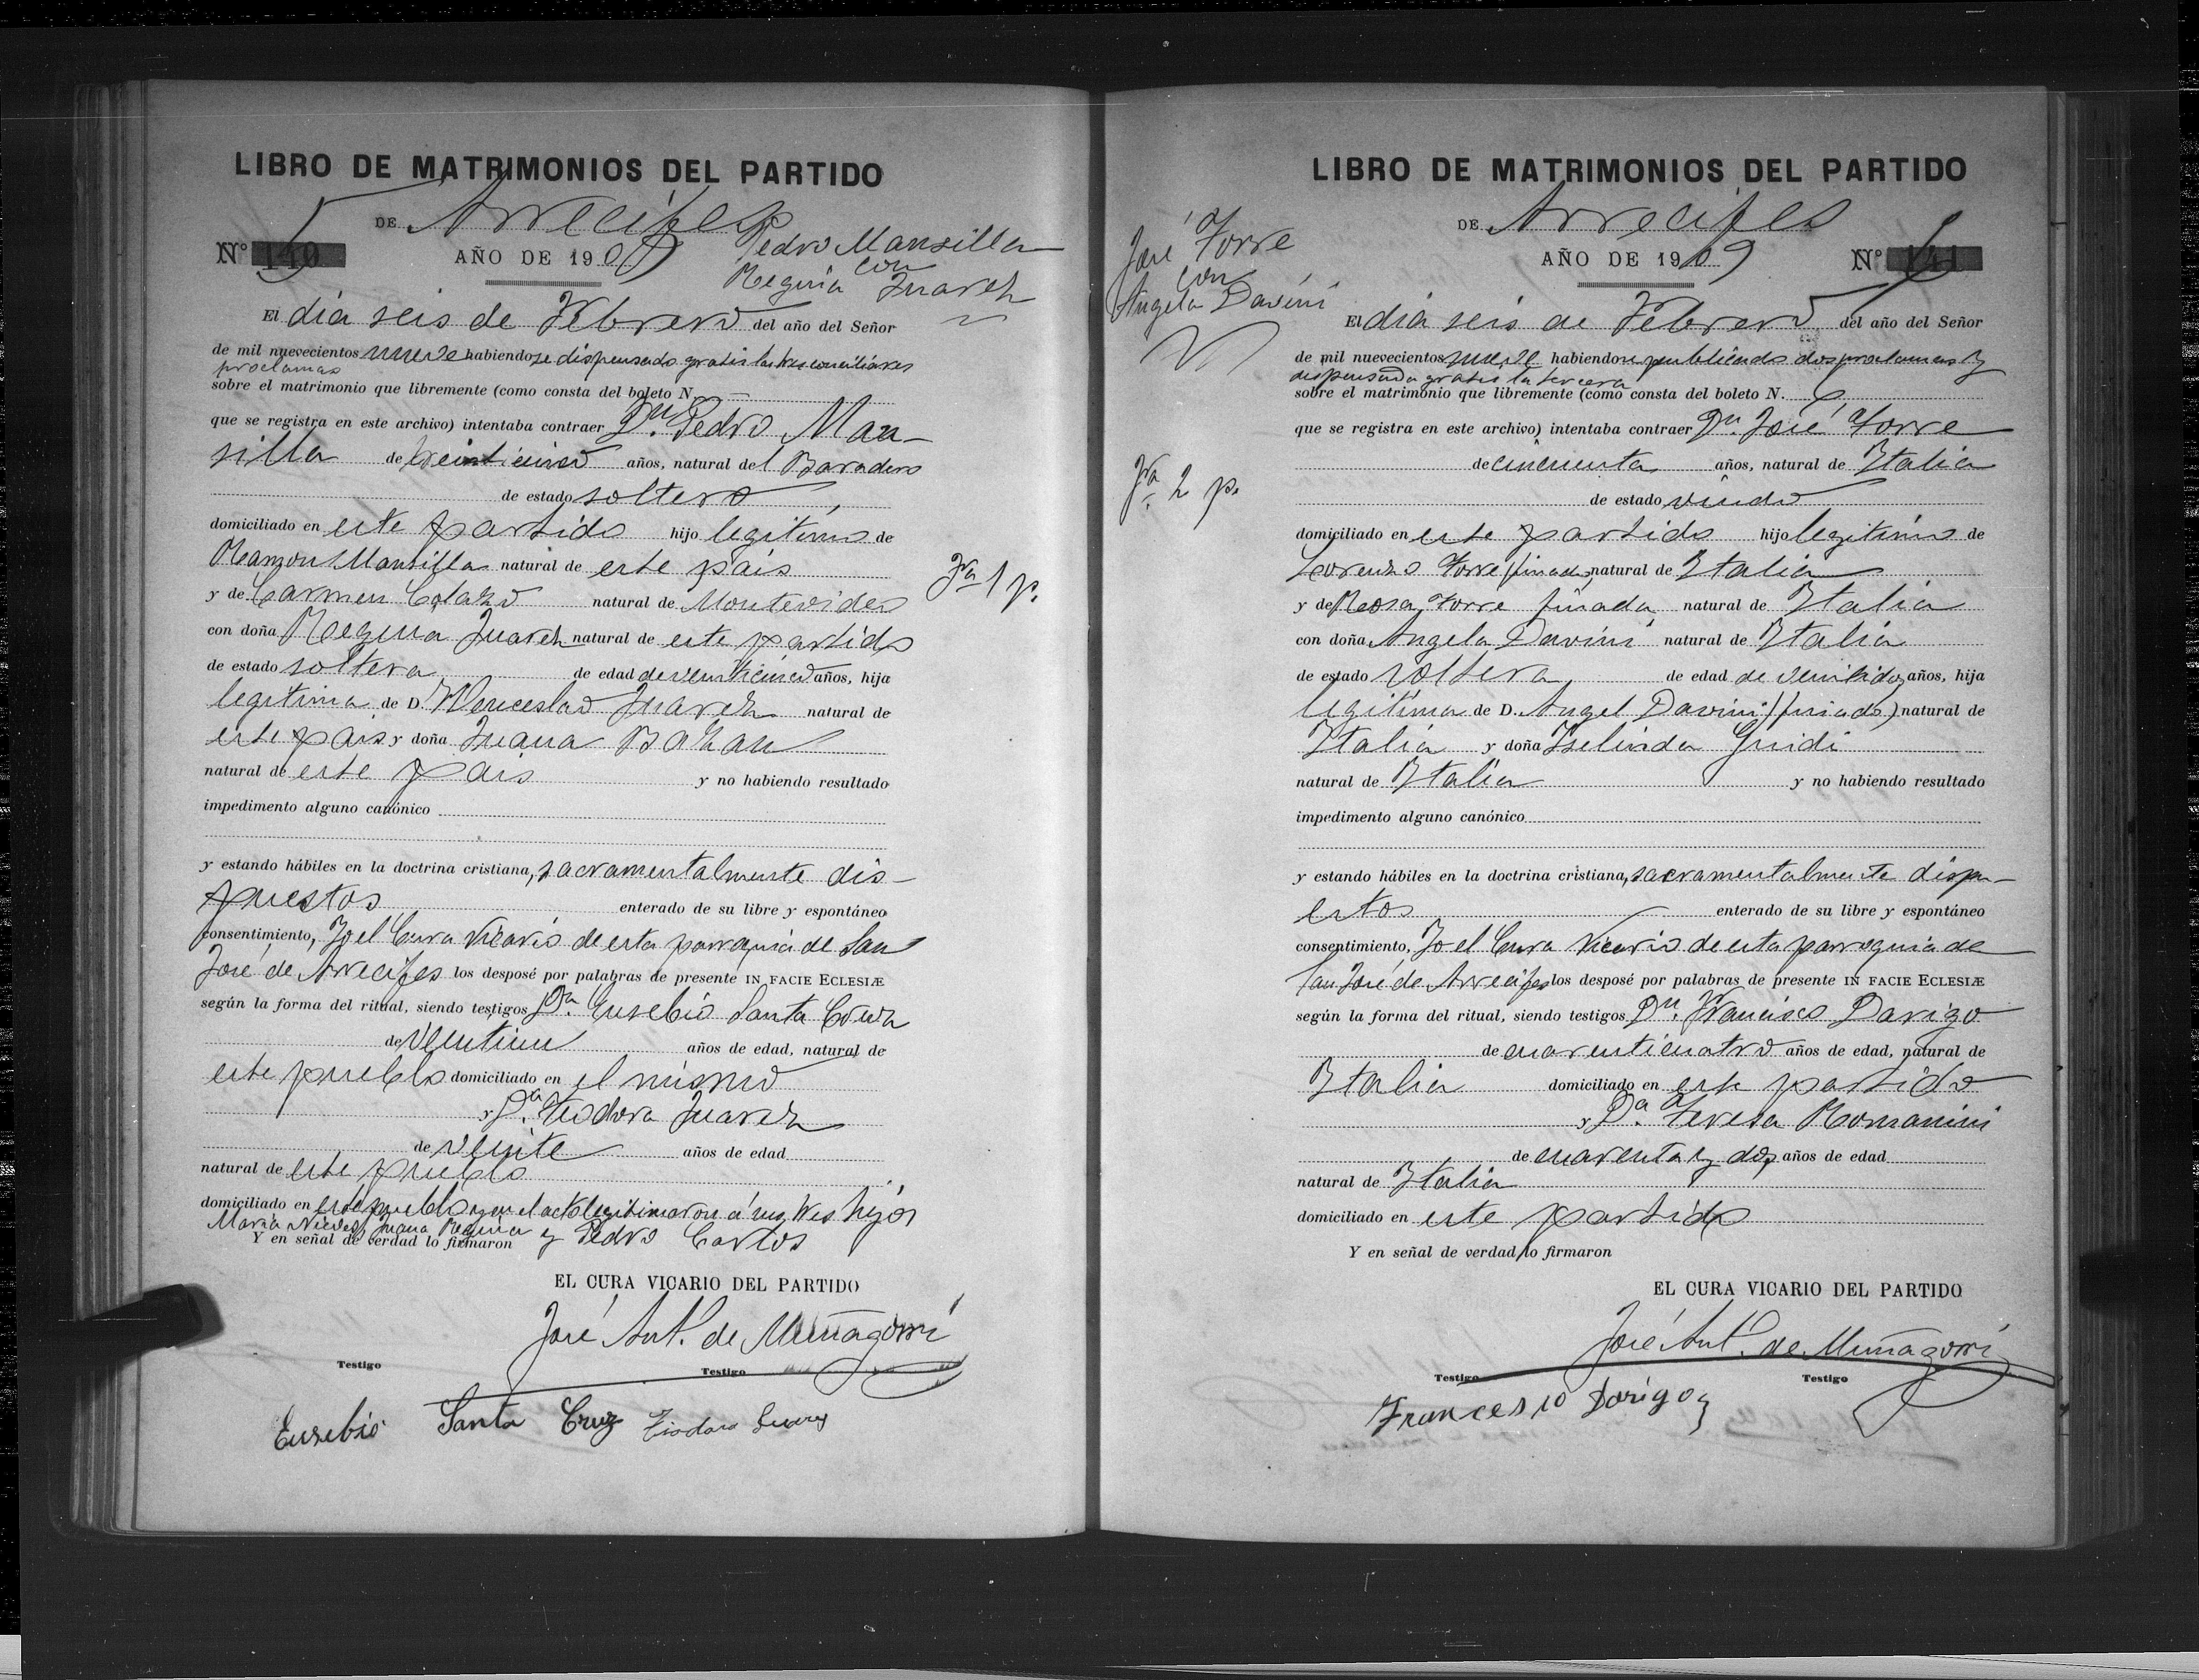 LIBRO DE MATRIMONIOS DEL PARTIDO
DE Arrecifes
Nº 140 5
AÑO DE 1909
Pedro Mansilla
con
Regina Juarez
El dia seis de Febrero del año del Señor
de mil nuevecientos nueve habiendose dispensado gratis las tres conciliares
proclamas
sobre el matrimonio que libremente (como consta del boleto N.
que se registra en este archivo) intentaba contraer Dn. Pedro Man-
silla de años, natural del Baradero
de estado soltero
domiciliado en este partido hijo legitimo de
Ramon Mansilla natural de este pais
y de Carmen Colazo natural de Montevideo
con doña Regina Juarez natural de este partido
de estado soltera de edad de venticinco años, hija
legitima de D. Wenceslao Juarez natural de
este pais y doña Juana Bazan
natural de este pais y no habiendo resultado
impedimento alguno canónico
y estando hábiles en la doctrina cristiana, sacramentalmente dis-
puestos enterado de su libre y espontáneo
consentimiento, Yo el Cura Vicario de esta parroquia de San
José de Arrecifes los desposé por palabras de presente IN FACIE ECLESIÆ
según la forma del ritual, siendo testigos Dn. Eusebio Santa Cruz
de ventiun años de edad, natural de
este pueblo domiciliado en el mismo
y Da. Teodora Juarez
de veinte años de edad
natural de este pueblo
domiciliado en este pueblo y en el acto legitimaron á sus tres hijos
Maria Nieves, Juana Regina y Pedro Carlos
Y en señal de verdad lo firmaron
EL CURA VICARIO DEL PARTIDO
José Ant. de Muñagorri
Testigo Testigo
Eusebio Santa Cruz Tiodora Suares
1 p.
LIBRO DE MATRIMONIOS DEL PARTIDO
DE Arrecifes
AÑO DE 1909
Nº 141 6
José Torre
con
Angela Davini
2 p.
El dia seis de Febrero del año del Señor
de mil nuevecientos nueve habiendose publicado dos proclamas y
dispensada gratis la tercera
sobre el matrimonio que libremente (como consta del boleto N. 6
que se registra en este archivo) intentaba contraer Dn. José Torre
de cincuenta años, natural de Italia
de estado viudo
domiciliado en este partido hijo legitimo de
Lorenzo Torre (finado) natural de Italia
y de Rosa Torre finada natural de Italia
con doña Angela Davini natural de Italia
de estado soltera de edad de ventidos años, hija
legitima de D. Angel Davini (finado) natural de
Italia y doña Iselinda Guidi
natural de Italia y no habiendo resultado
impedimento alguno canónico
y estando hábiles en la doctrina cristiana, sacramentalmente dispu-
estos enterado de su libre y espontáneo
consentimiento, Yo el Cura Vicario de esta parroquia de
San José de Arrecifes los desposé por palabras de presente IN FACIE ECLESIÆ
según la forma del ritual, siendo testigos Dn. Francisco Darigo
de cuarenticuatro años de edad, natural de
Italia domiciliado en este partido
y Da. Teresa Romanini
de cuarenta y dos años de edad
natural de Italia
domiciliado en este partido
Y en señal de verdad lo firmaron
EL CURA VICARIO DEL PARTIDO
José Ant. de Muñagorri
Testigo Testigo
Francesco Dorigo